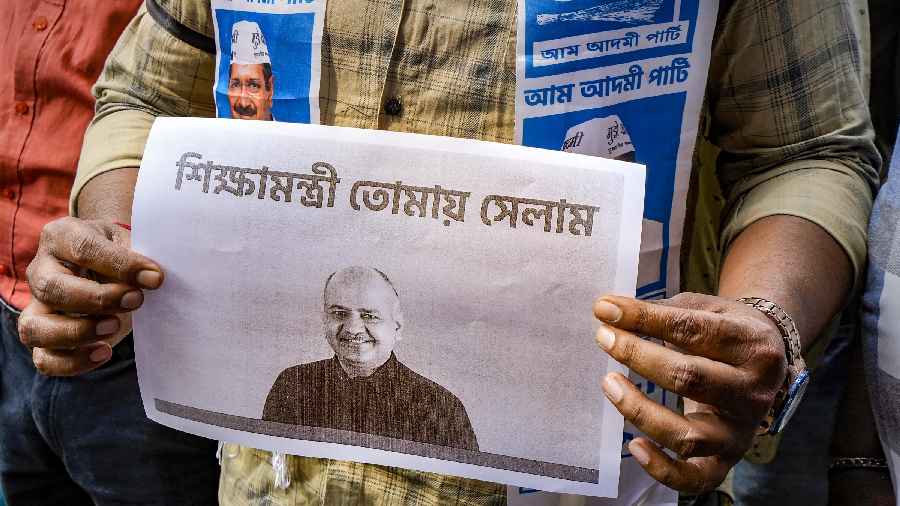 আম আদমী পার্টি
আম আদমী পার্টি
শিক্ষামন্ত্রী তোমায় সেলাম